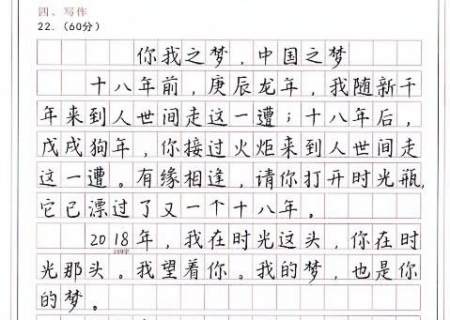 四、写作
22.（60分）
你我之梦，中国之梦
十八年前，庚辰龙年，我随新千
年来到人世间走这一遭；十八年后，
戊戌狗年，你接过火炬来到人世间走
这一遭。有缘相逢，请你打开时光瓶，
它已漂过了又一个十八年。
2018年，我在时光这头，你在时
光那头。我望着你。我的梦，也是你
的梦。